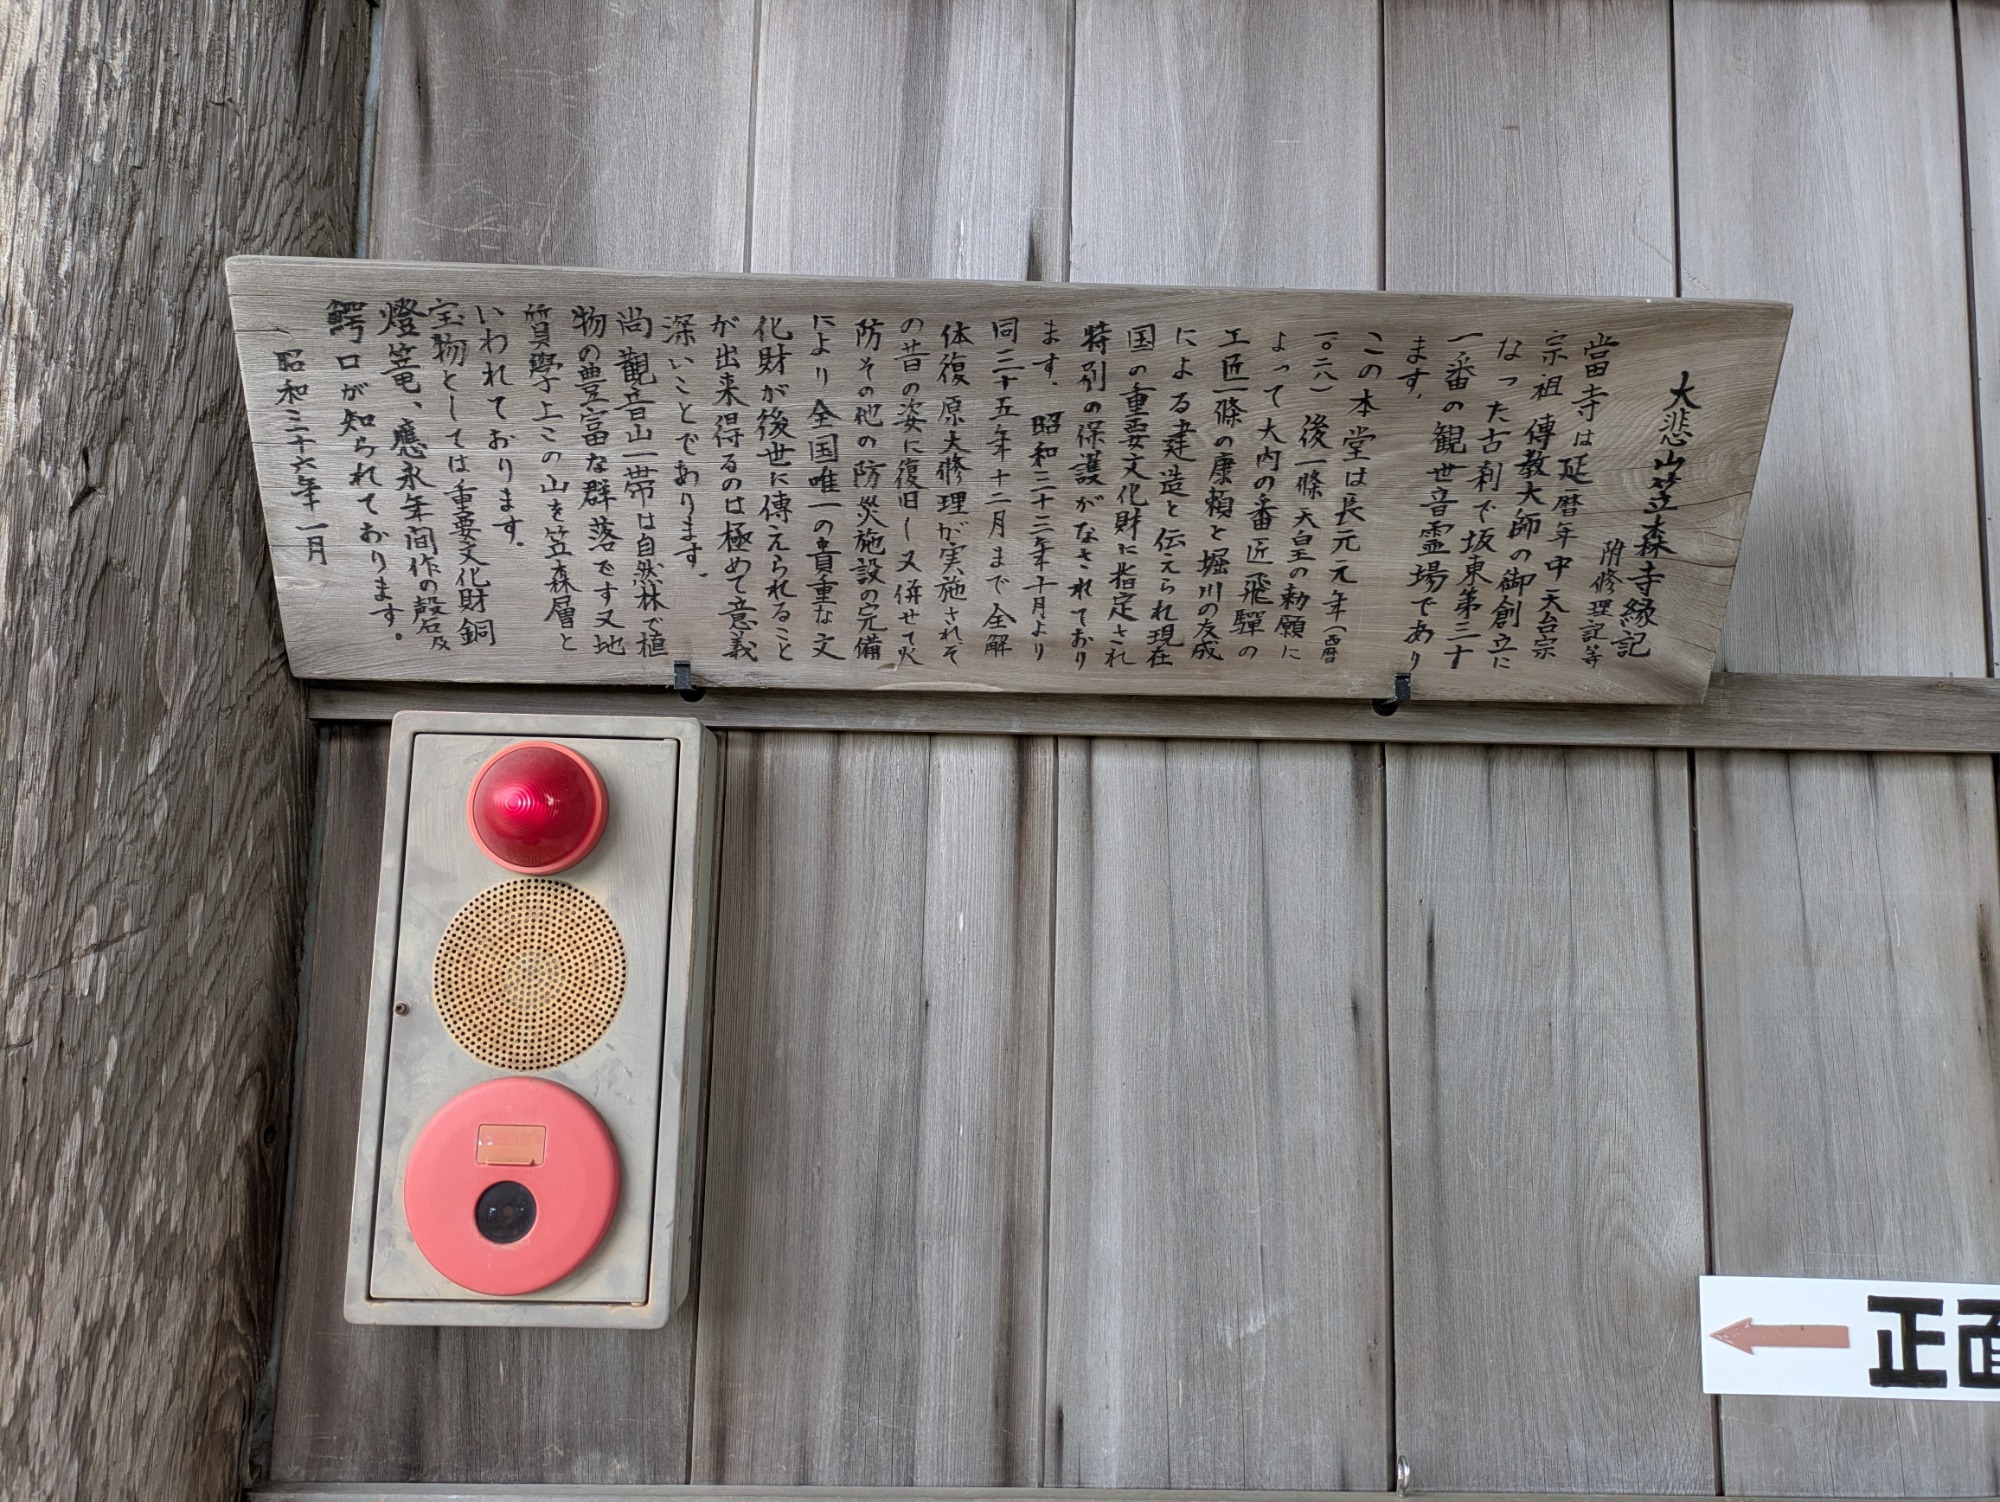 大悲山笠森寺縁記
附修理記等
當寺は延暦年中天台宗
宗祖傳教大師の御創立に
なった古刹で坂東第三十
一番の観世音霊場であり
ます。
この本堂は長元元年(西暦
一〇二八)後一條天皇の勅願に
よって大内の番匠飛驒の
工匠一條の康頼と堀川の友成
による建造と伝えられ現在
国の重要文化財に指定され
特別の保護がなされており
ます。昭和三十三年十月より
同三十五年十二月まで全解
体復原大修理が実施されそ
の昔の姿に復旧し又併せて火
防その他の防災施設の完備
により全国唯一の貴重な文
化財が後世に傳えられること
が出来得るのは極めて意義
深いことであります。
尚観音山一帯は自然林で植
物の豊富な群落です又地
質學上この山を笠森層と
いわれております。
宝物としては重要文化財銅
燈篭、應永年間作の殻石及
鰐口が知られております。
昭和三十六年一月
正面